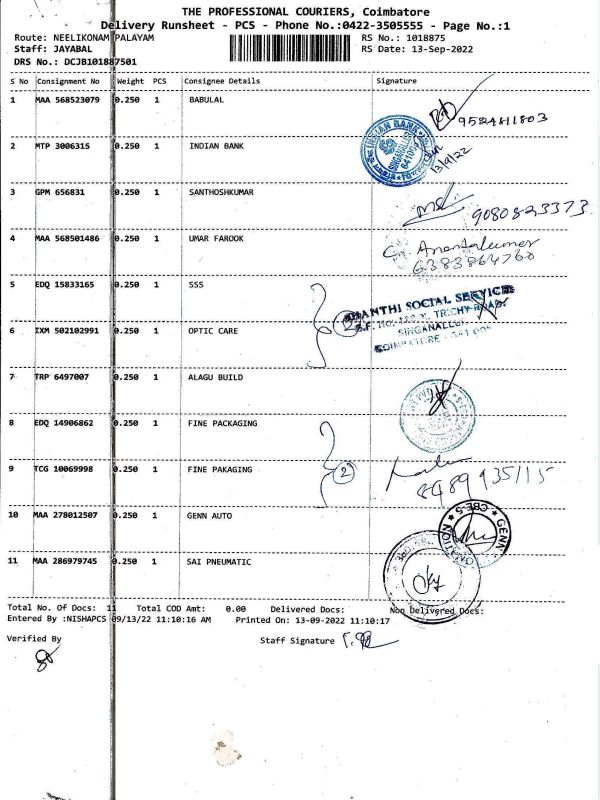 THE PROFESSIONAL COURIERS, Coimbatore
Delivery Runsheet - PCS - Phone No.:0422-3505555 - Page No.:1
Route: NEELIKONAM PALAYAM
RS No.: 1018875
Staff: JAYABAL
RS Date: 13-Sep-2022
DRS No.: DCJB101887501
S No Consignment No Weight PCS Consignee Details Signature
1 MAA 568523079 0.250 1 BABULAL
9524811803
2 MTP 3006315 0.250 1 INDIAN BANK
INDIAN BANK
SINGANALLUR
13/9/22
3 GPM 656831 0.250 1 SANTHOSHKUMAR
9080823373
4 MAA 568501486 0.250 1 UMAR FAROOK
6383864760
5 EDQ 15833165 0.250 1 SSS
SHANTHI SOCIAL SERVICES
TRICHY ROAD,
SINGANALLUR
COIMBATORE - 641 005
2
6 IXM 502102991 0.250 1 OPTIC CARE
7 TRP 6497007 0.250 1 ALAGU BUILD
8 EDQ 14906862 0.250 1 FINE PACKAGING
9 TCG 10069998 0.250 1 FINE PAKAGING
2
8489935115
10 MAA 278012507 0.250 1 GENN AUTO
GENN
CBE-5
11 MAA 286979745 0.250 1 SAI PNEUMATIC
Total No. Of Docs: 11 Total COD Amt: 0.00 Delivered Docs: Non Delivered Docs:
Entered By :NISHAPCS 09/13/22 11:10:16 AM Printed On: 13-09-2022 11:10:17
Verified By
Staff Signature